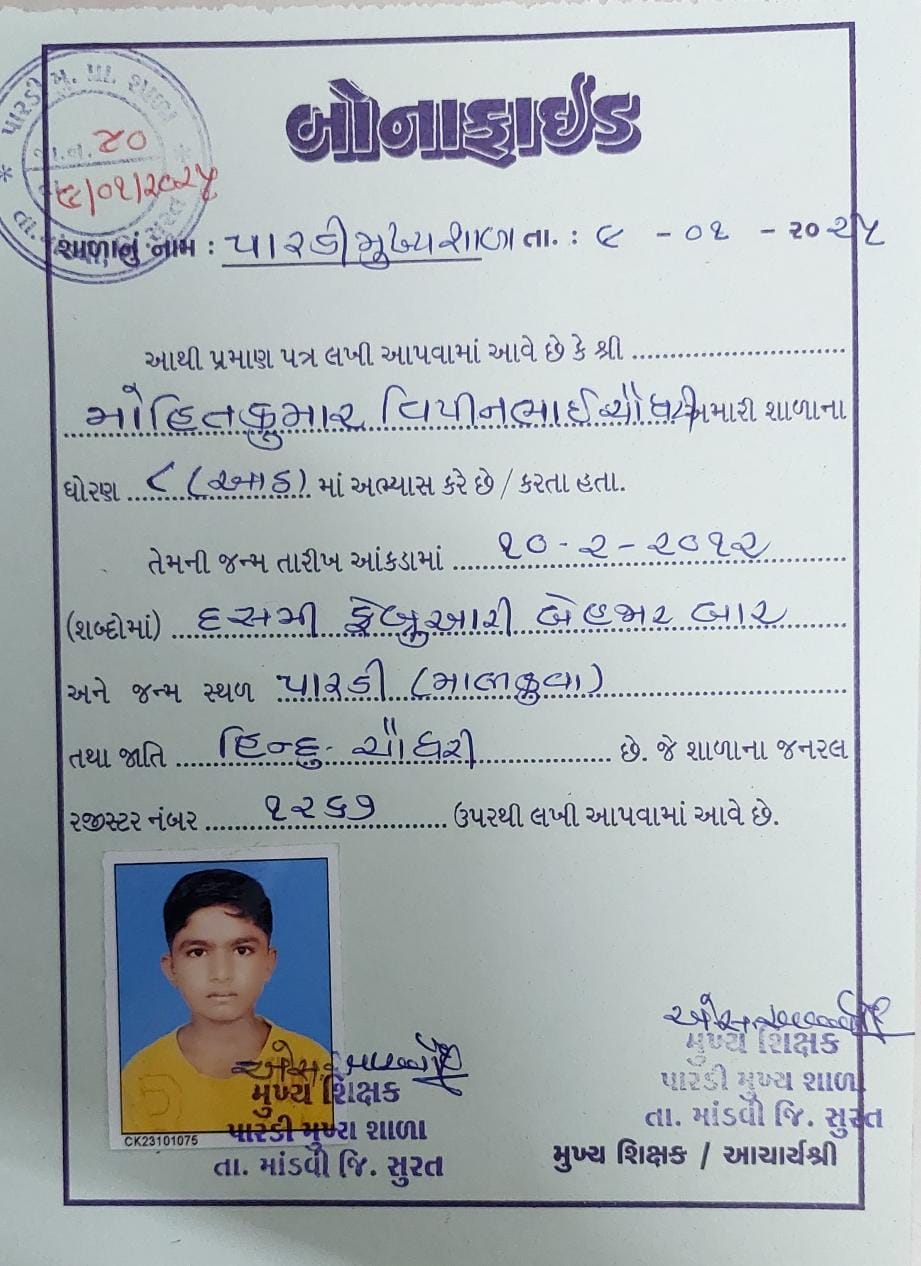 બોનાફાઈડ
પારડી મુ. પ્રા. શાળા
જા.ન. ૪૦
૯/૦૧/૨૦૨૫
શાળાનું નામ : પારડી મુખ્ય શાળા તા. : ૯ - ૦૧ - ૨૦૨૫
આથી પ્રમાણ પત્ર લખી આપવામાં આવે છે કે શ્રી
મોહિતકુમાર વિપીનભાઈ ચૌધરી અમારી શાળાના
ધોરણ ૮ (આઠ) માં અભ્યાસ કરે છે / કરતા હતા.
તેમની જન્મ તારીખ આંકડામાં ૧૦-૨-૨૦૧૨
(શબ્દોમાં) દસમી ફેબ્રુઆરી બેહજાર બાર
અને જન્મ સ્થળ પારડી (માલકુવા)
તથા જાતિ હિન્દુ- ચૌધરી છે. જે શાળાના જનરલ
રજીસ્ટર નંબર ૧૨૬૭ ઉપરથી લખી આપવામાં આવે છે.
CK23101075
મુખ્ય શિક્ષક
પારડી મુખ્ય શાળા
તા. માંડવી જિ. સુરત
મુખ્ય શિક્ષક
પારડી મુખ્ય શાળા
તા. માંડવી જિ. સુરત
મુખ્ય શિક્ષક / આચાર્યશ્રી